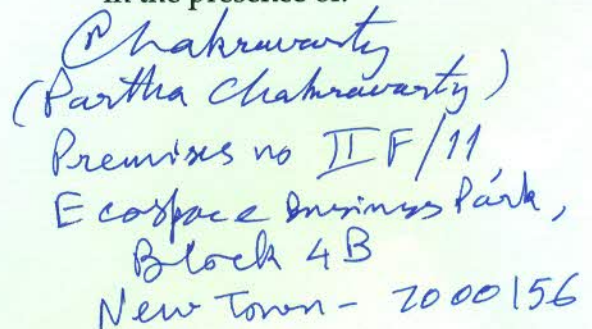 in the presence of:
P Chakravarty
(Partha Chakravarty)
Premises no II F/11
Ecospace Business Park,
Block 4B
New Town - 7000156